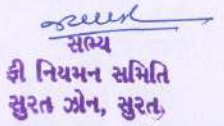 સભ્ય
ફી નિયમન સમિતિ
સુરત ઝોન, સુરત,